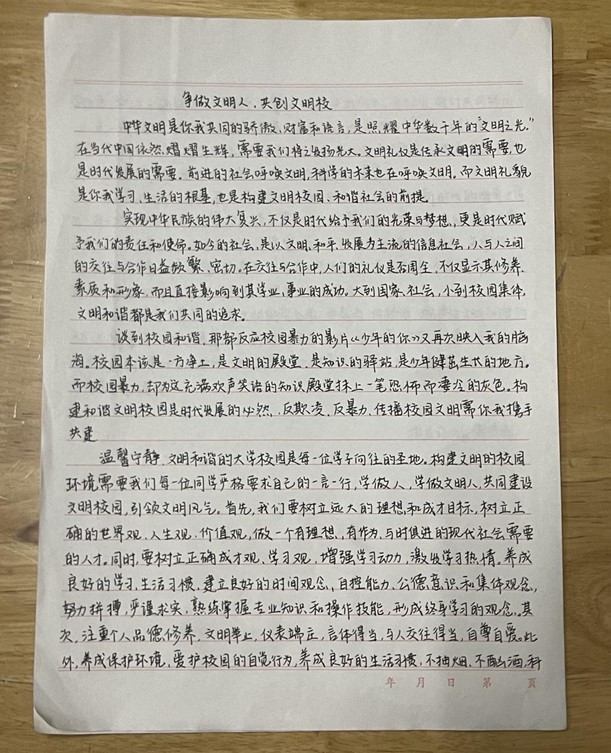 争做文明人,共创文明校
中华文明是你我共同的骄傲,财富和语言,是照耀中华数千年的“文明之光。”
在当代中国依然熠熠生辉,需要我们将之发扬光大。文明礼仪是传承文明的需要,也
是时代发展的需要,前进的社会呼唤文明,科学的未来也在呼唤文明,而文明礼貌
是你我学习、生活的根基,也是构建文明校园、和谐社会的前提。
实现中华民族的伟大复兴,不仅是时代给予我们的光荣与梦想,更是时代赋
予我们的责任和使命。如今的社会,是以文明、和平、发展为主流的信息社会,人与人之间
的交往与合作日益频繁、密切。在交往与合作中,人们的礼仪是否周全,不仅显示其修养、
素质和形象,而且直接影响到其学业、事业的成功。大到国家、社会,小到校园集体,
文明和谐都是我们共同的追求。
谈到校园和谐,那部反应校园暴力的影片《少年的你》又再次映入我的脑
海。校园本该是一方净土,是文明的殿堂,是知识的驿站,是少年健茁生长的地方。
而校园暴力,却为这充满欢声笑语的知识殿堂抹上一笔恐怖而凄冷的灰色。构
建和谐文明校园是时代发展的必然,反欺凌、反暴力,传播校园文明需你我携手
共建
温馨宁静,文明和谐的大学校园是每一位学子向往的圣地。构建文明的校园
环境需要我们每一位同学严格要求自己的一言一行,学做人,学做文明人,共同建设
文明校园,引领文明风气。首先,我们要树立远大的理想和成才目标,树立正
确的世界观、人生观、价值观,做一个有理想、有作为、与时俱进的现代社会需要
的人才。同时,要树立正确成才观、学习观,增强学习动力,激发学习热情。养成
良好的学习、生活习惯,建立良好的时间观念、自控能力、公德意识和集体观念,
努力拼搏,严谨求实,熟练掌握专业知识和操作技能,形成终身学习的观念。其
次,注重个人品德修养,文明举止,仪表端正,言体得当,与人交往得当,自尊自爱。此
外,养成保护环境,爱护校园的自觉行为,养成良好的生活习惯,不抽烟,不酗酒,科
年 月 日 第 頁